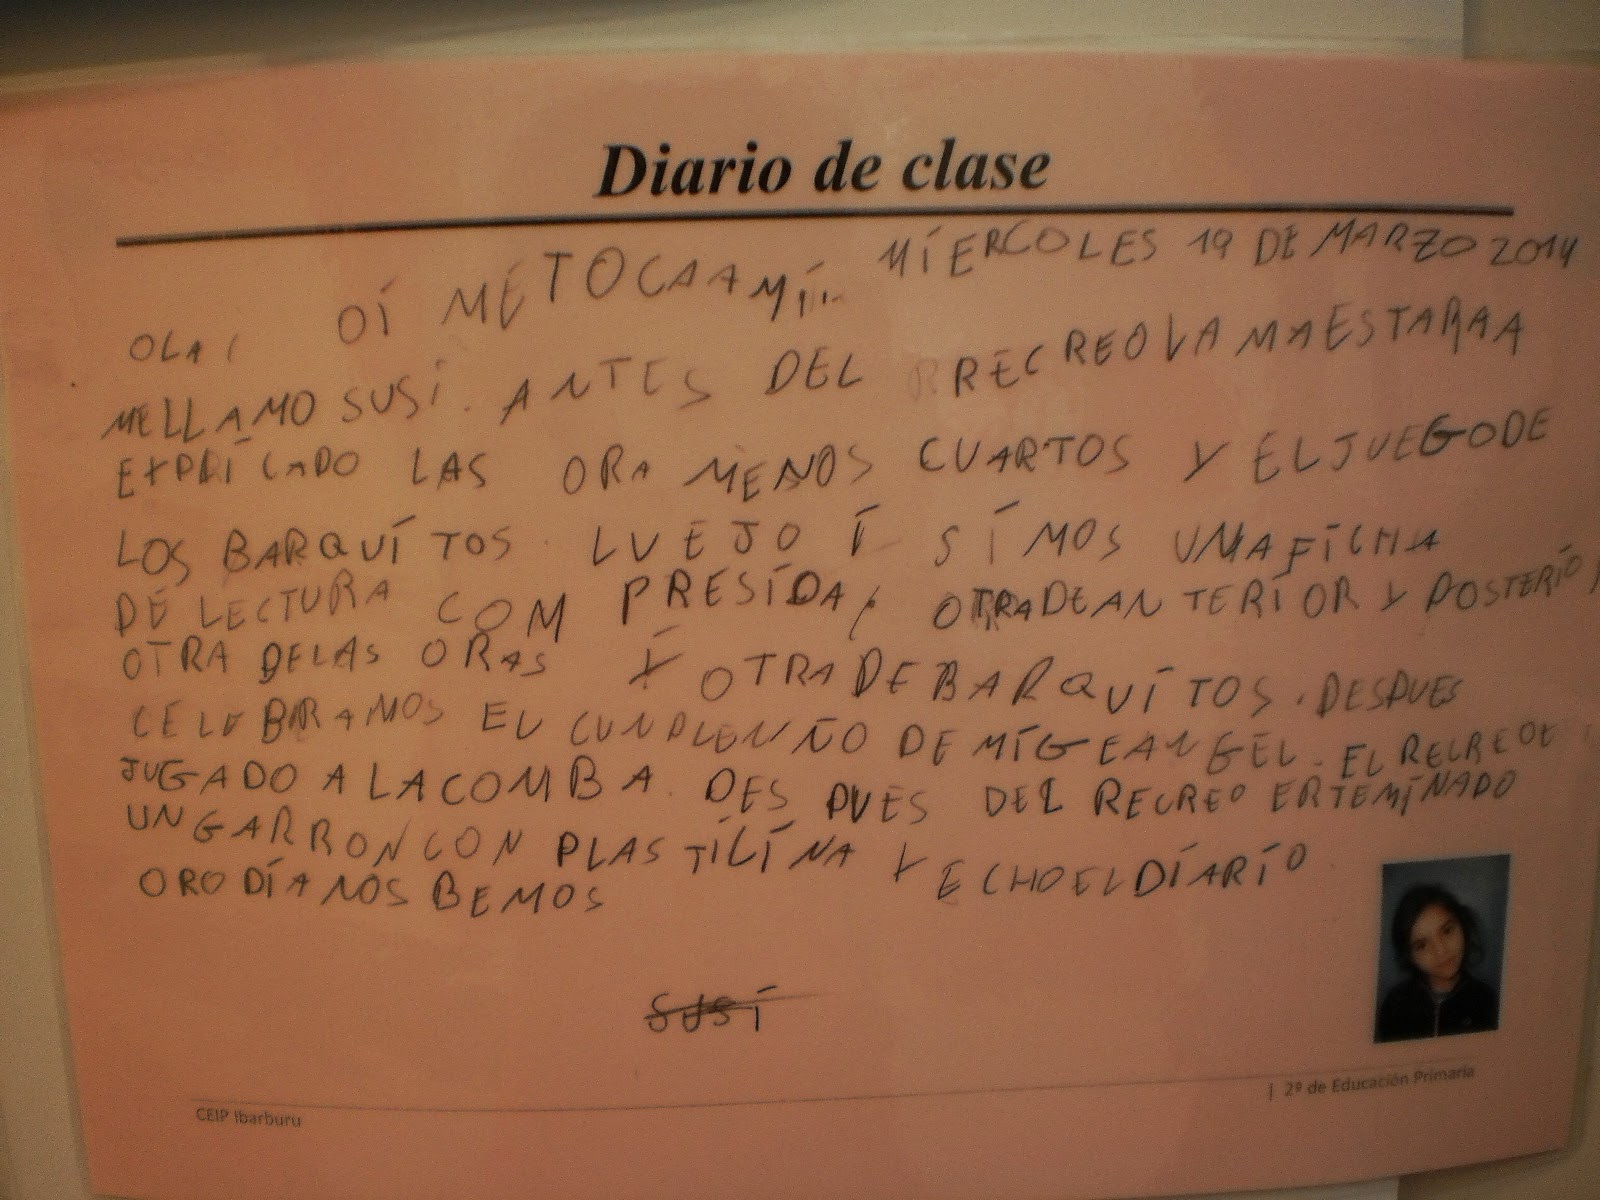 Diario de clase
MÍERCOLES 19 DE MARZO 2014
OLA¡ OÍ METOCAAMÍ...
MELLAMO SUSÍ. ANTES DEL RRECREO LA MAESTARAA
EXPRÍCADO LAS ORA MENOS CUARTOS Y ELJUEGODE
LOS BARQUÍTOS. LUEJO Í SÍMOS UNAFÍCHA
DE LECTURA COMPRESÍDA, OTRADEANTERÍOR Y POSTERÍO
OTRA DELAS ORAS Y OTRA DEBARQUÍTOS. DESPUES
CELEBRAMOS EL DE MÍGEANGEL. EL RECREOE
JUGADO A LACOMBA. DESPUES DEL RECREO ERTEMÍNADO
UNGARRONCON PLASTÍLÍNA Y ECHOELDÍARÍO
ORODÍANOSBEMOS
SUSÍ
CEIP Ibarburu
| 2º de Educación Primaria